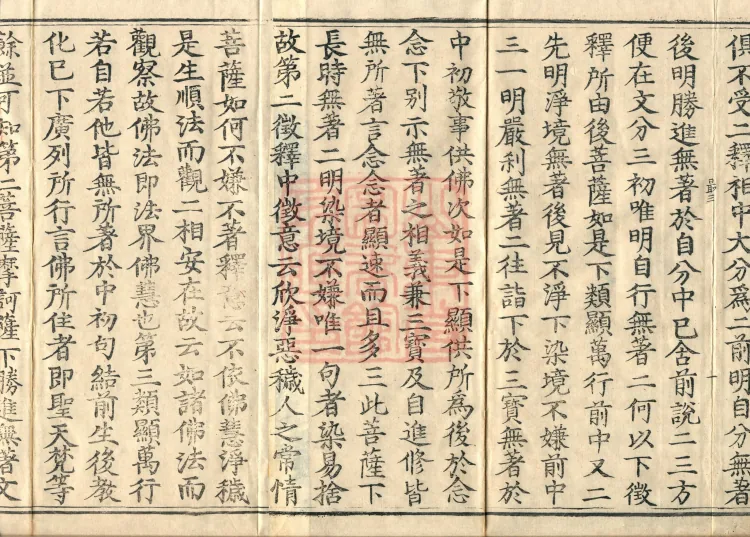 俱不受二釋相中大分爲二前明自分無著
後明勝進無著於自分中已含前說二三方
便在文分三初唯明自行無著二何以下徵
釋所由後菩薩如是下類顯萬行前中又二
先明淨境無著後見不淨下染境不嫌前中
三一明嚴利無著二往詣下於三寶無著於
中初敬事供佛次如是下顯供所爲後於念
念下別示無著之相義兼三寶及自進修皆
無所著言念念者顯速而且多三此菩薩下
長時無著二明染境不嫌唯一句者染易捨
故第二徵釋中徵意云欣淨惡穢人之常情
菩薩如何不嫌不著釋意云不依佛慧淨穢
是生順法而觀二相安在故云如諸佛法而
觀察故佛法即法界佛慧也第三類顯萬行
若自若他皆無所著於中初句結前生後教
化已下廣列所行言佛所住者即聖天梵等
餘並可知第二菩薩摩訶薩下勝進無著文